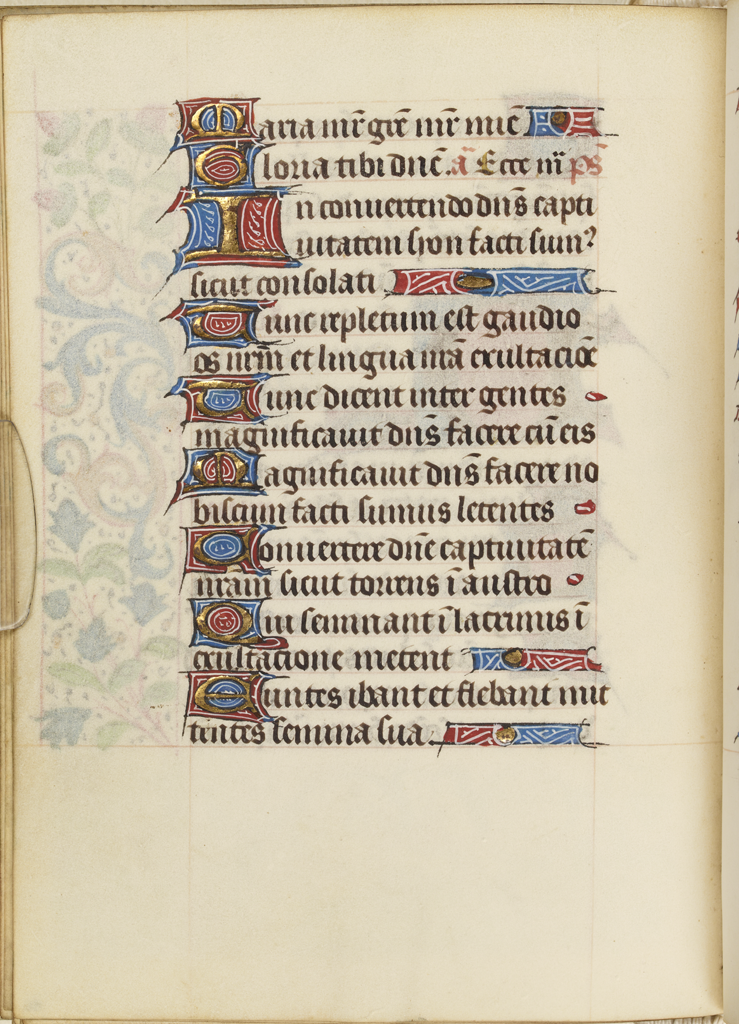 Maria mr̄ grē mr̄ mīe
Gloria tibi dn̄e. añ Ecce m̄ ps̄
In conuertendo dn̄s capti
uitatem syon facti sum?
sicut consolati
Tunc repletum est gaudio
os nr̄m et lingua nr̄a exultacioē
Tunc dicent inter gentes
magnificauit dn̄s facere cū eis
Magnificauit dn̄s facere no
biscum facti sumus letentes
Conuertere dn̄e captiuitatē
nr̄am sicut torrens ī austro
Qui seminant ī lacrimis ī
exultacione metent
Euntes ibant et flebant mit
tentes semina sua